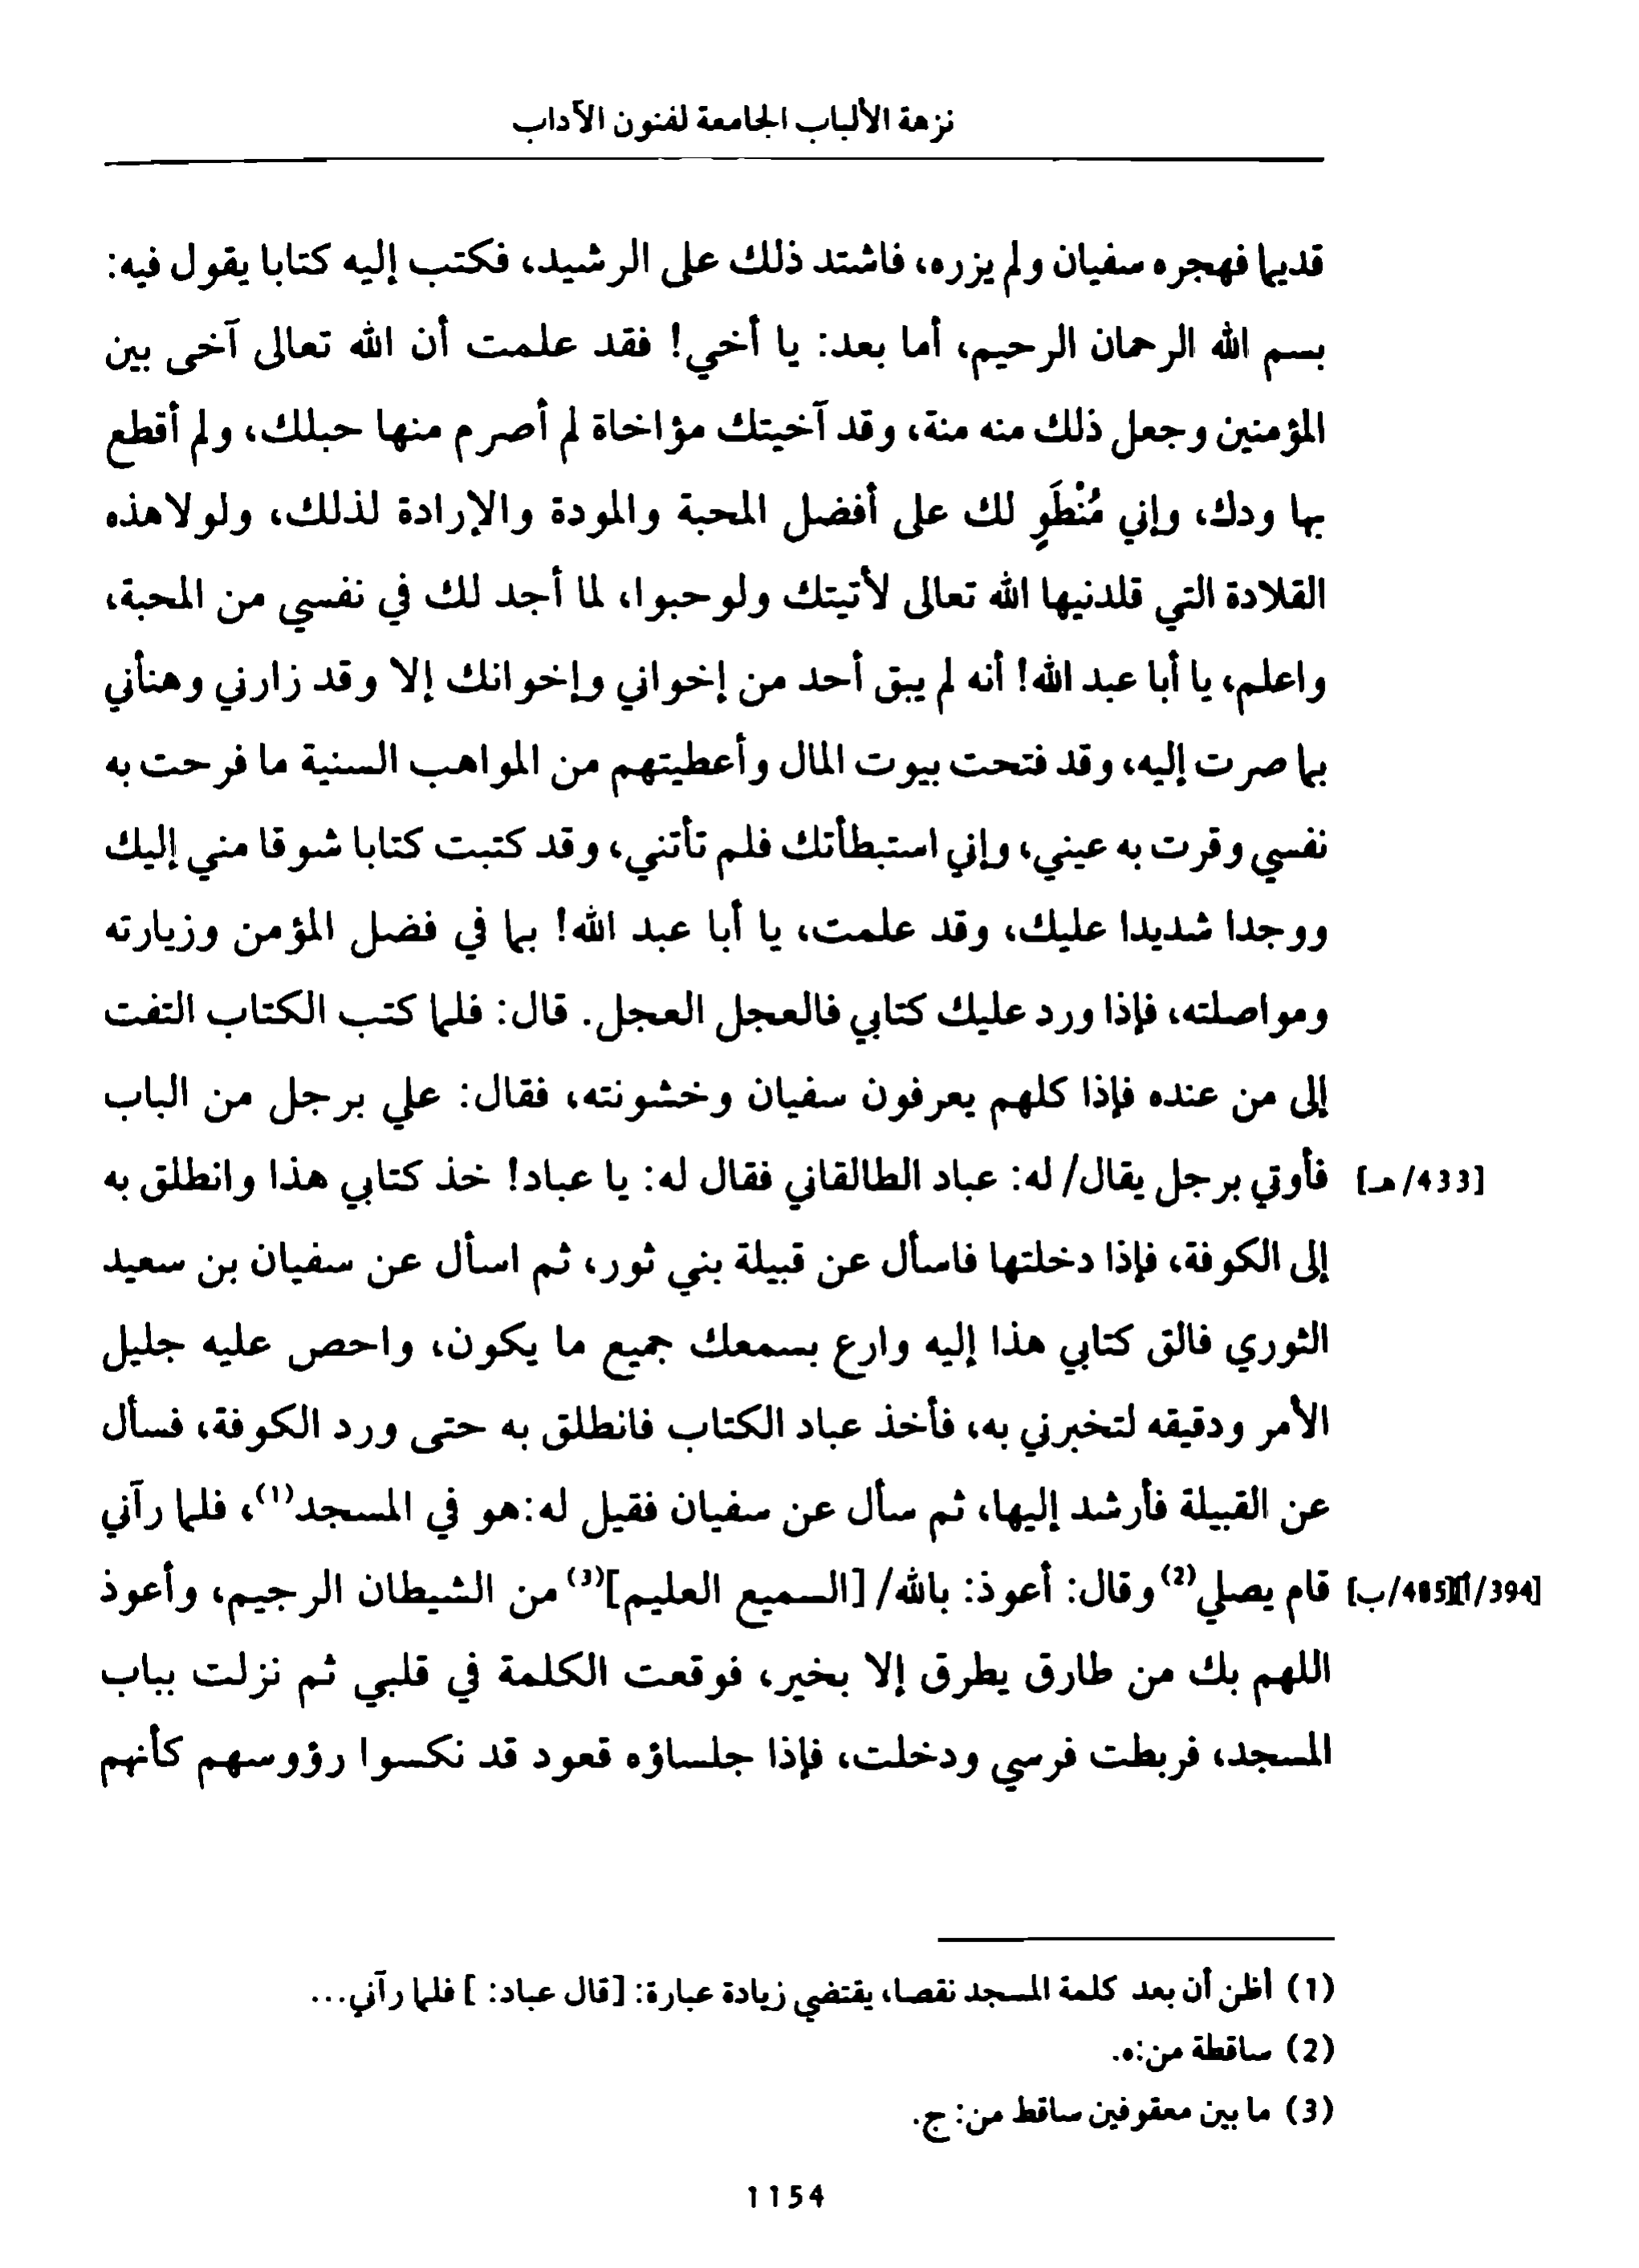 نزهة الألباب الجامعة لفنون الآداب
قديما فهجره سفيان ولم يزره، فاشتد ذلك على الرشيد، فكتب إليه كتابا يقول فيه:
بسم الله الرحمان الرحيم، أما بعد: يا أخي! فقد علمت أن الله تعالى آخى بين
المؤمنين وجعل ذلك منه منة، وقد آخيتك مؤاخاة لم أصرم منها حبلك، ولم أقطع
بها ودك، وإني مُنْطَوٍ لك على أفضل المحبة والمودة والإرادة لذلك، ولولاهذه
القلادة التي قلدنيها الله تعالى لأتيتك ولوحبوا، لما أجد لك في نفسي من المحبة،
واعلم، يا أبا عبد الله! أنه لم يبق أحد من إخواني وإخوانك إلا وقد زارني وهنأني
بما صرت إليه، وقد فتحت بيوت المال وأعطيتهم من المواهب السنية ما فرحت به
نفسي وقرت به عيني، وإني استبطأتك فلم تأتني، وقد كتبت كتابا شوقا مني إليك
ووجدا شديدا عليك، وقد علمت، يا أبا عبد الله! بما في فضل المؤمن وزيارته
ومواصلته، فإذا ورد عليك كتابي فالعجل العجل. قال: فلما كتب الكتاب التفت
إلى من عنده فإذا كلهم يعرفون سفيان وخشونته، فقال: علي برجل من الباب
[433/هـ] فأوتي برجل يقال/ له: عباد الطالقاني فقال له: يا عباد! خذ كتابي هذا وانطلق به
إلى الكوفة، فإذا دخلتها فاسأل عن قبيلة بني ثور، ثم اسأل عن سفيان بن سعيد
الثوري فالق كتابي هذا إليه وارع بسمعك جميع ما يكون، واحص عليه جليل
الأمر ودقيقه لتخبرني به، فأخذ عباد الكتاب فانطلق به حتى ورد الكوفة، فسأل
عن القبيلة فأرشد إليها، ثم سأل عن سفيان فقيل له:هو في المسجد(1)، فلما رآني
[394/أ][485/ب] قام يصلي(2) وقال: أعوذ: بالله/ [السميع العليم](3) من الشيطان الرجيم، وأعوذ
اللهم بك من طارق يطرق إلا بخير، فوقعت الكلمة في قلبي ثم نزلت بباب
المسجد، فربطت فرسي ودخلت، فإذا جلساؤه قعود قد نكسوا رؤوسهم كأنهم
(1) أظن أن بعد كلمة المسجد نقصا، يقتضي زيادة عبارة: [قال عباد: ] فلما رآني...
(2) ساقطة من:ه.
(3) ما بين معقوفين ساقط من: ج.
1154